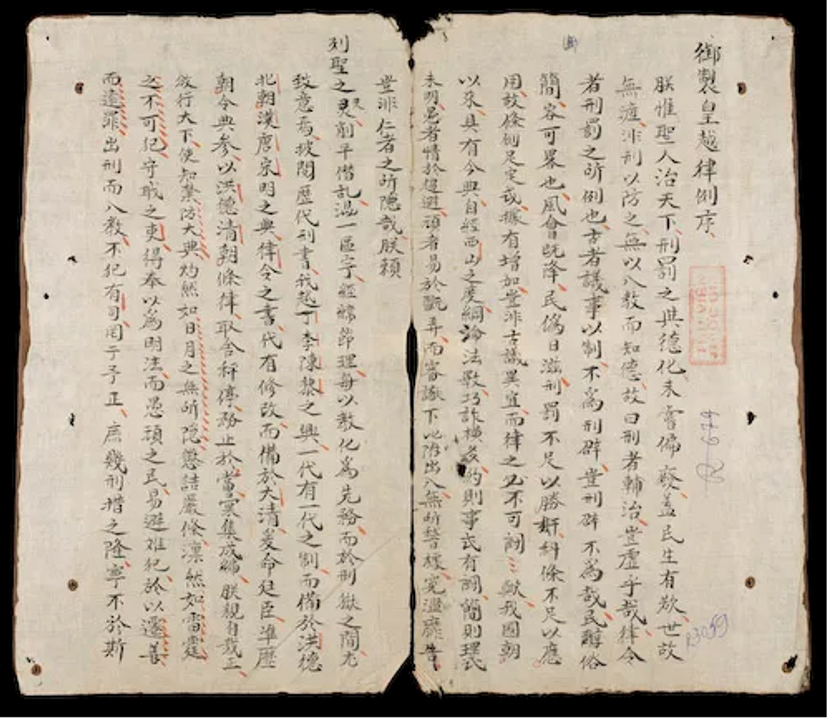 御製皇越律例序
朕惟聖人治天下刑罰之與德化未嘗偏廢蓋民生有欲世故
無遮非刑以防之無以入教而知德故曰刑者輔治豈虛乎哉律令
者刑罰之所例也古者議事以制不爲刑辟豈刑辟不為哉民醇俗
簡容可畧也風會既降民僞日滋刑罰不足以勝奸科條不足以應
用故條例足定或據有增加豈非古議異宜而律之必不可闕歟我國朝
以來具有令典自經西山之度綱淪法斁巧詐橫發約則事或有闕簡則理或
未明愚者惰於趨避頑者易於翫弄而審讞下比附出入無所督據冤濫靡告
豈非仁者之所隱哉朕賴
列聖之灵削平僭乱混一區宇經綸節理每以教化爲先務而於刑獄之間尤
致意焉披閱歷代刑書我越丁李陳黎之興一代有一代之制而備於洪德
北朝漢唐宋明之興律令之書代有修改而備於大清爰命廷臣準歷
朝令典參以洪德清朝條律取舍秤停務止於當彙集成編朕親自裁正
頒行天下使知禁防大典灼然如日月之無所隱懲詰嚴條凜然如雷霆
之不可犯守職之吏得奉以爲明法而愚頑之民易避难犯於以遷善
而遠罪出刑而入教不犯有司用于予正庶幾刑措之隆寧不於斯